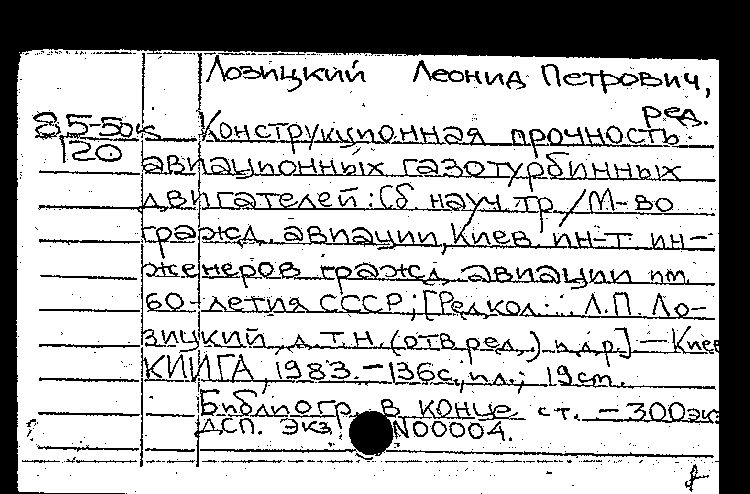 Лозицкий Леонид Петрович,
ред.
85-5ок
120
Конструкционная прочность
авиационных газотурбинных
двигателей: Сб. науч. тр. / М-во
гражд. авиации, Киев. ин-т ин-
женеров гражд. авиации им.
60-летия СССР; [Редкол.: Л.П. Ло-
зицкий, д.т.н. (отв. ред.) и др.] — Киев
КИИГА, 1983. – 136с., ил.; 19см.
Библиогр. в конце ст. – 300экз
ДСП. Экз N00004.